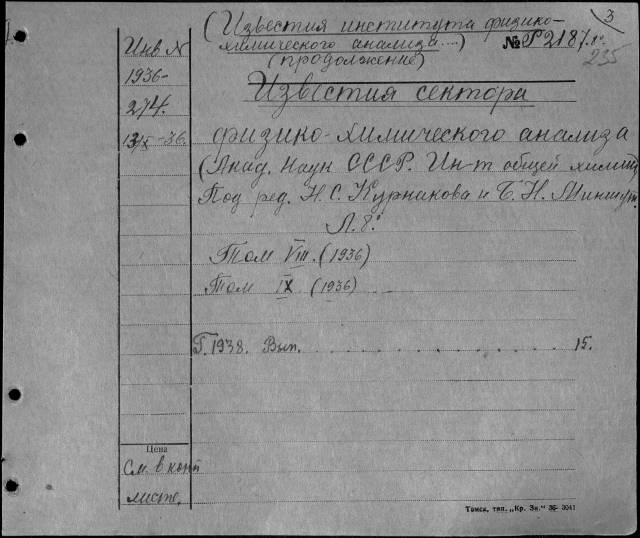 3
(Известия института физико-
химического анализа....) № Р2187.8º
(продолжение) 235
Известия сектора
физико-химического анализа
(Акад. Наук СССР. Ин-т общей химии)
Под ред. Н. С. Курнакова и Б. Н. Меншут.
Л. 8º
Том VIII. (1936)
Том IX (1936)
Г. 1938. Вып. . . . . . . . . . . 15.
Инв №
1936-
274.
13/X-36.
Цена
См. в конт
листе.
Томск, тип. „Кр. Зн." 36- 3041